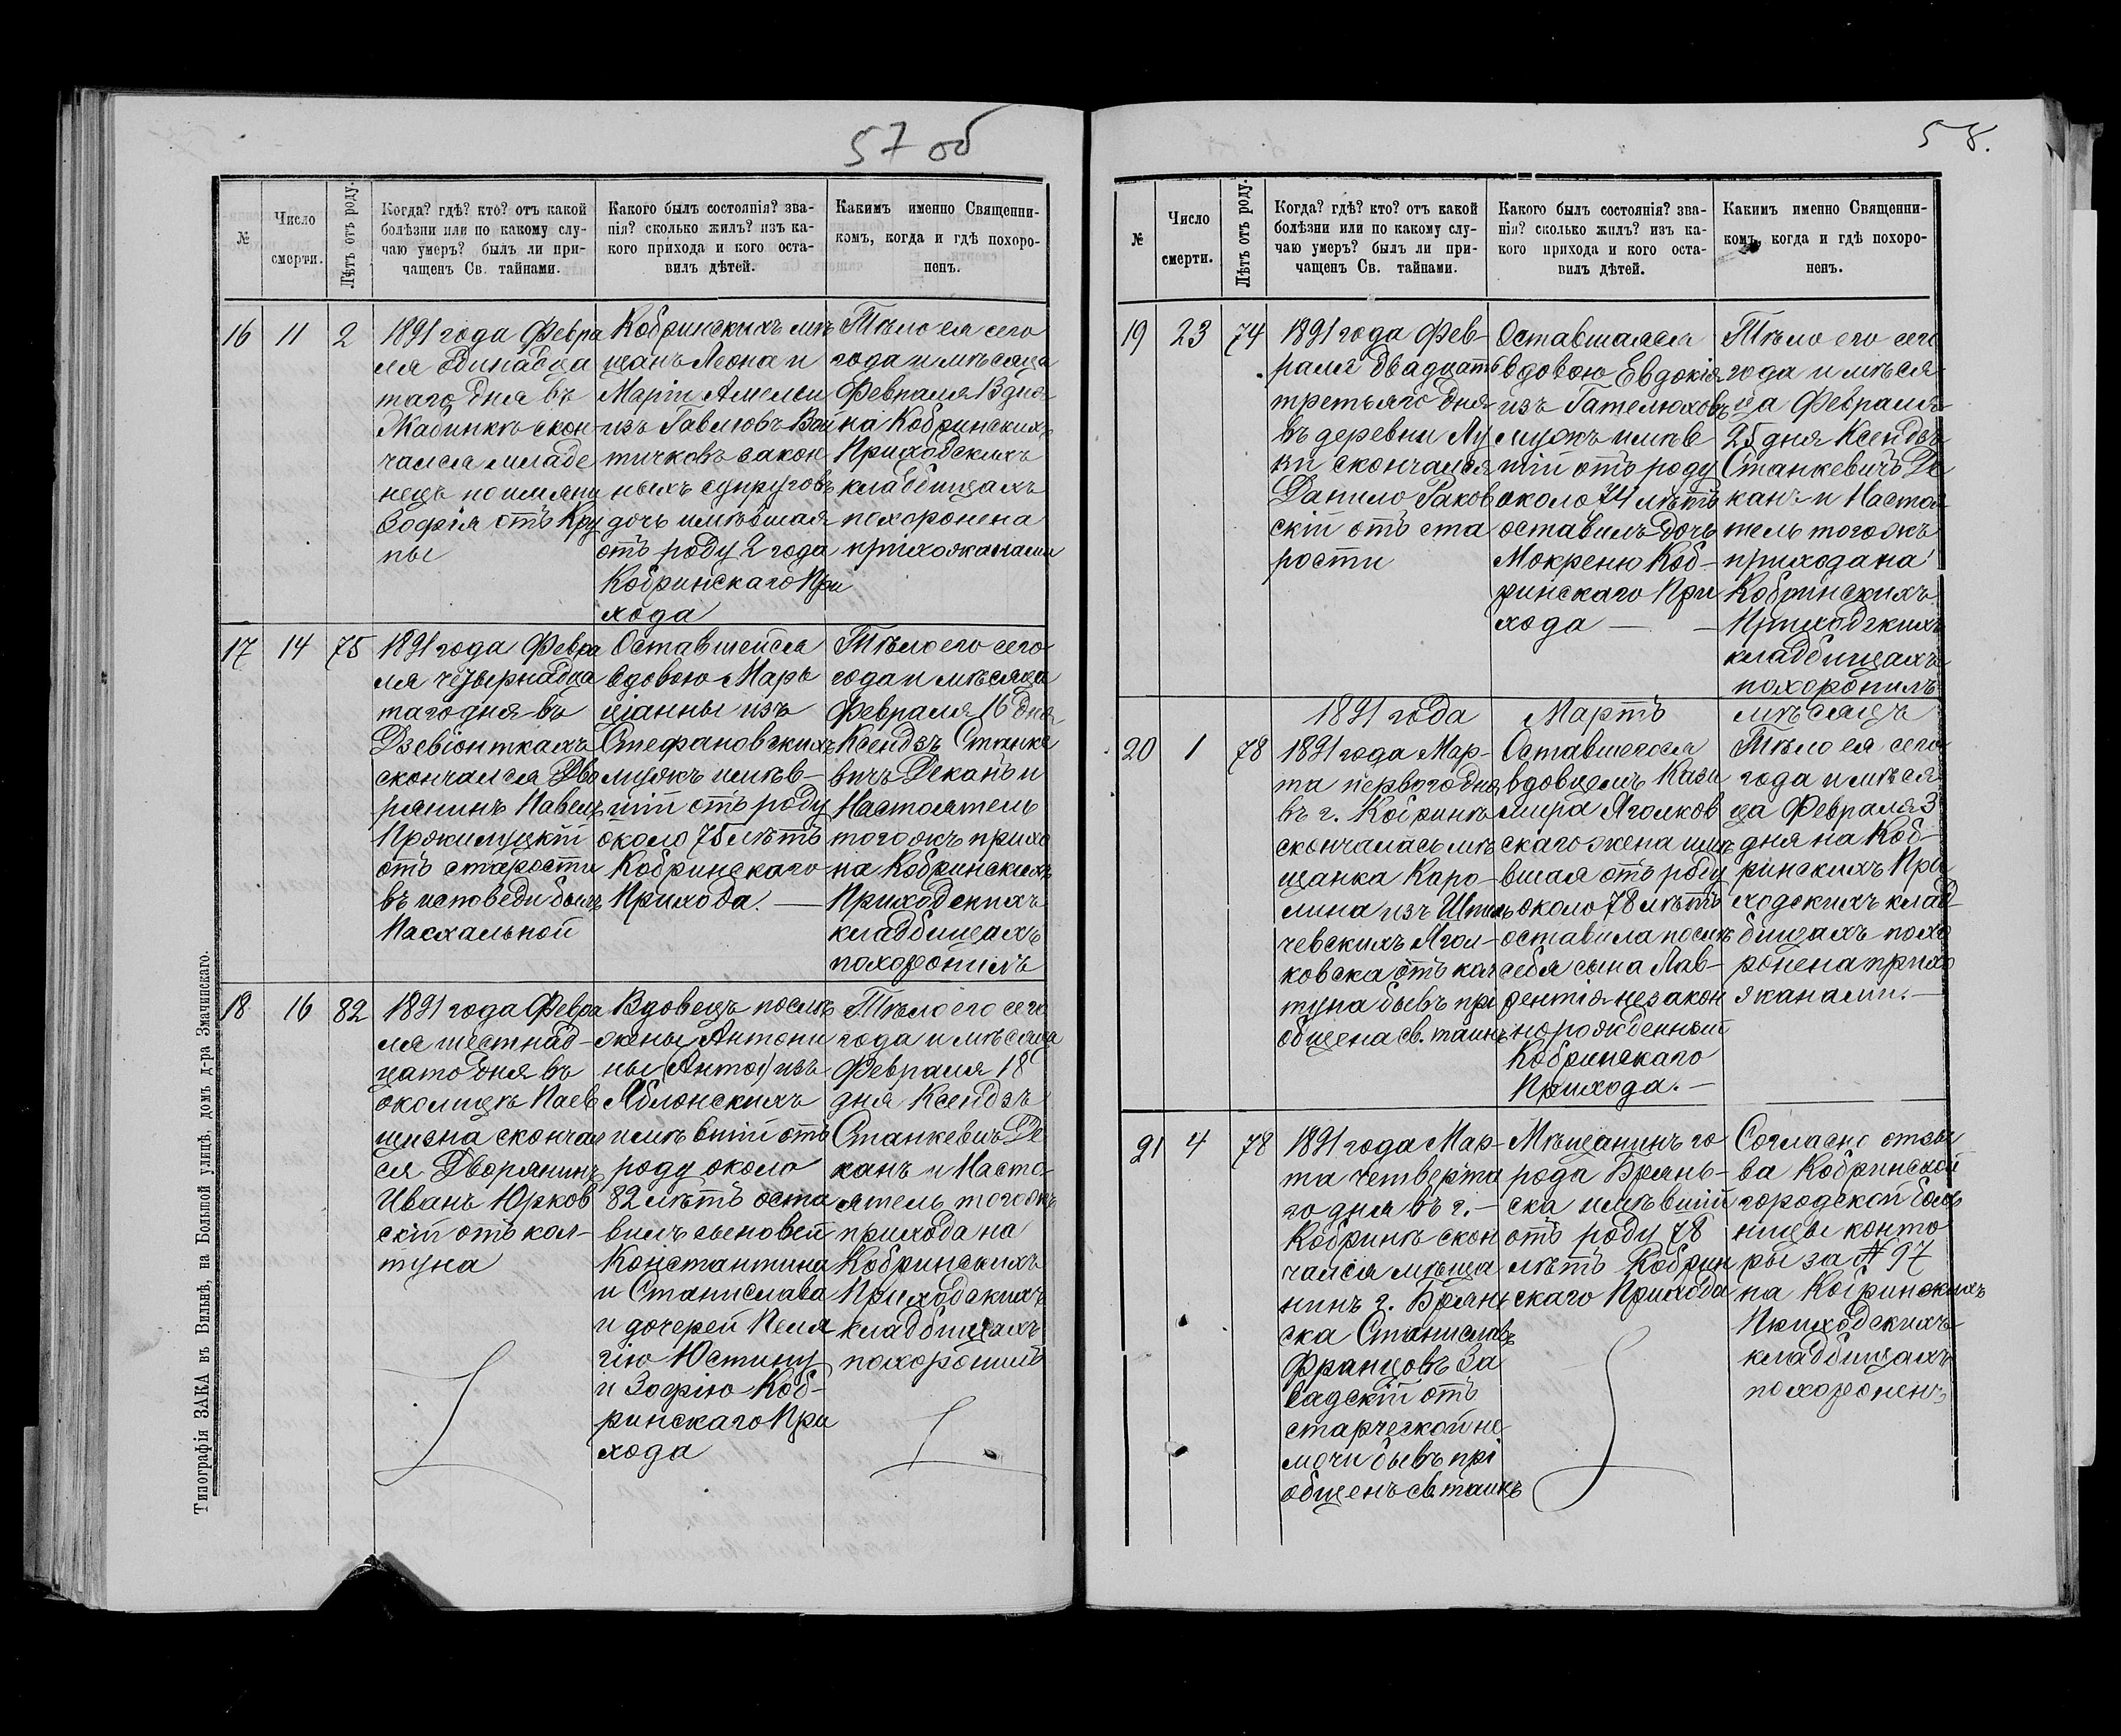 57 об
№
Число
смерти.
Лѣтъ отъ роду.
Когда? гдѣ? кто? отъ какой
болѣзни или по какому слу-
чаю умеръ? былъ ли при-
чащенъ Св. тайнами.
Какого былъ состоянія? зва-
нія? сколько жилъ? изъ ка-
кого прихода и кого оста-
вилъ дѣтей.
Какимъ именно Священни-
комъ, когда и гдѣ похоро-
ненъ.
16
11
2
1891 года Февра
ля одинадца
таго дня въ
Жабинкѣ скон-
чался младе
нецъ по имяни
Зофія отъ Кру
пы
Кобринскихъ мѣ
щанъ Леона и
Маріи Амельи
изъ Гавлювъ Вой
тичковъ закон
ныхъ супруговъ
дочь имѣвшая
отъ роду 2 года
Кобринскаго При
хода
Тѣло ея сего
года и мѣсяца
Февраля 13 дня
на Кобринскихъ
Приходскихъ
кладбищахъ
похоронена
прихожанами
17
14
75
1891 года Февра
ля четырнадца
таго дня въ
Дзевіонткахъ
скончался Дво
рянинъ Павелъ
Пржилуцкій
отъ старости
въ исповеди былъ
Пасхальной
Оставшейся
вдовою Марь
ціанны изъ
Стефановскихъ
мужъ имѣв-
шій отъ роду
около 75 лѣтъ
Кобринскаго
Прихода. —
Тѣло его сего
года и мѣсяца
Февраля 16 дня
Ксендзъ Станке
вичъ Деканъ и
Настоятель
того жъ прихо
на Кобринскихъ
Приходскихъ
кладбищахъ
похоронилъ
18
16
82
1891 года Февра
ля шестнад-
цато дня въ
околицѣ Паев
щизна сконча
ся Дворянинъ
Иванъ Юрков
скій отъ кол-
туна
Вдовецъ послѣ
жены Антони
ны (Анто) изъ
Яблонскихъ
имѣвшій отъ
роду около
82 лѣтъ оста
вилъ сыновей
Константина
и Станислава
и дочерей Пеля
гію Юстину
и Зофію Коб-
ринскаго При
хода
Тѣло его сего
года и мѣсяца
Февраля 18
дня Ксендзъ
Станкевичъ Де
канъ и Насто-
ятель того жъ
прихода на
Кобринскихъ
Приходскихъ
кладбищахъ
похоронилъ
Типографія ЗАКА въ Вильнѣ, на Большой улицѣ, домъ д-ра Змачинскаго.
58.
№
Число
смерти.
Лѣтъ отъ роду.
Когда? гдѣ? кто? отъ какой
болѣзни или по какому слу-
чаю умеръ? былъ ли при-
чащенъ Св. тайнами.
Какого былъ состоянія? зва-
нія? сколько жилъ? изъ ка-
кого прихода и кого оста-
вилъ дѣтей.
Какимъ именно Священни-
комъ, когда и гдѣ похоро-
ненъ.
19
23
74
1891 года Фев-
раля двадцать
третьяго дня
въ деревни Лу
ки скончался
Данило Раков
скій отъ ста
рости
Оставшаяся
вдовою Евдокія
изъ Гателюховъ
мужъ имѣв
шій отъ роду
около 74 лѣтъ
оставилъ дочь
Мокреню Коб-
ринскаго При
хода —
Тѣло его сего
года и мѣся-
ца Февраля
25 дня Ксендзъ
Станкевичъ Де
канъ и Настоя
тель того жъ
прихода на
Кобринскихъ
Приходскихъ
кладбищахъ
похоронилъ
1891 года Мартъ мѣсяцъ
20
1
78
1891 года Мар-
та перваго дня
въ г. Кобринѣ
скончалась мѣ
щанка Каро-
лина изъ
чевскихъ Ягол-
ковска отъ кол
туна бывъ прі
общена св. таинъ
Оставшегося
вдовцемъ Кази
мира Яголков
скаго жена имѣ
вшая отъ роду
около 78 лѣтъ
оставила послѣ
себя сына Лав-
рентія незакон
норожденный
Кобринскаго
Прихода. —
Тѣло ея сего
года и мѣся
ца Февраля 3
дня на Коб-
ринскихъ При
ходскихъ клад-
бищахъ похо
ронена прихо
жанами. —
21
4
78
1891 года Мар-
та четверта
го дня въ г. —
Кобринѣ скон
чался мѣща
нинъ г. Брянь
ска Станиславъ
Францовъ За
вадскій отъ
старческой не
мочи бывъ прі
общенъ св. таинъ
Мѣщанинъ го
рода Брянь-
ска имѣвшій
отъ роду 78
лѣтъ Кобрин
скаго Прихода
Согласно отзы
ва Кобринской
городской боль
ницы конто
ры за № 97
на Кобринскихъ
Приходскихъ
кладбищахъ
похороненъ